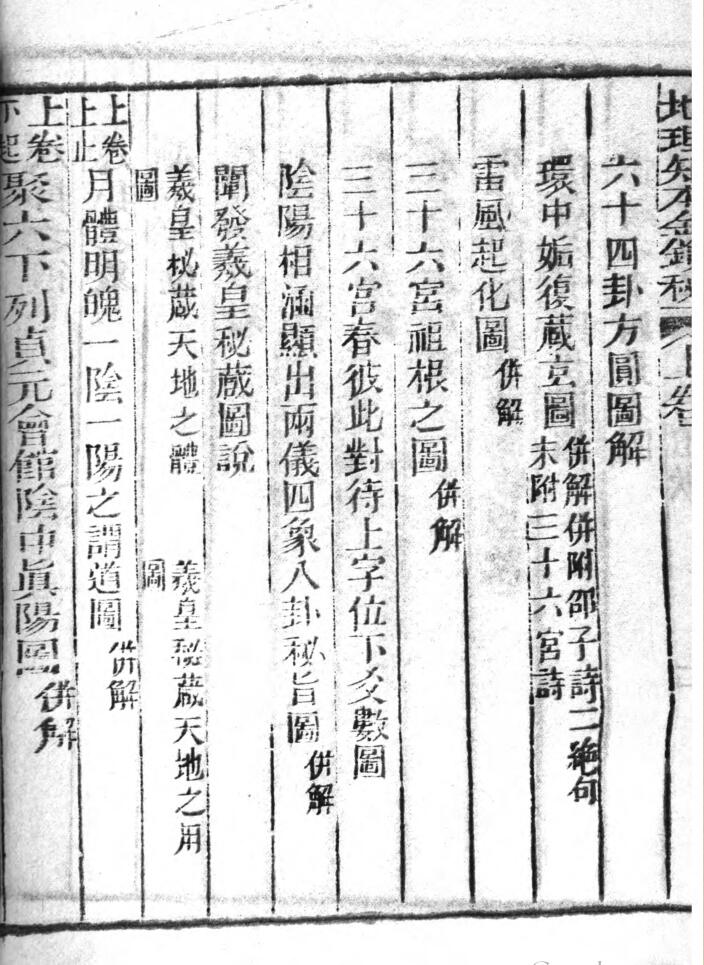 地理知本金鎖秘 上卷
六十四卦方圓圖解
環中姤復藏玄圖 併解併附邵子詩二絶句
末附三十六宮詩
雷風起化圖 併解
三十六宮祖根之圖 併解
三十六宮春彼此對待上字位下爻數圖
陰陽相涵顯出兩儀四象八卦秘旨圖 併解
闡發羲皇秘藏圖說
羲皇秘藏天地之體圖
羲皇秘藏天地之用圖
上卷上止 月體明魄一陰一陽之謂道圖 併解
上卷下起 聚六下列貞元會館陰中眞陽圖 併解